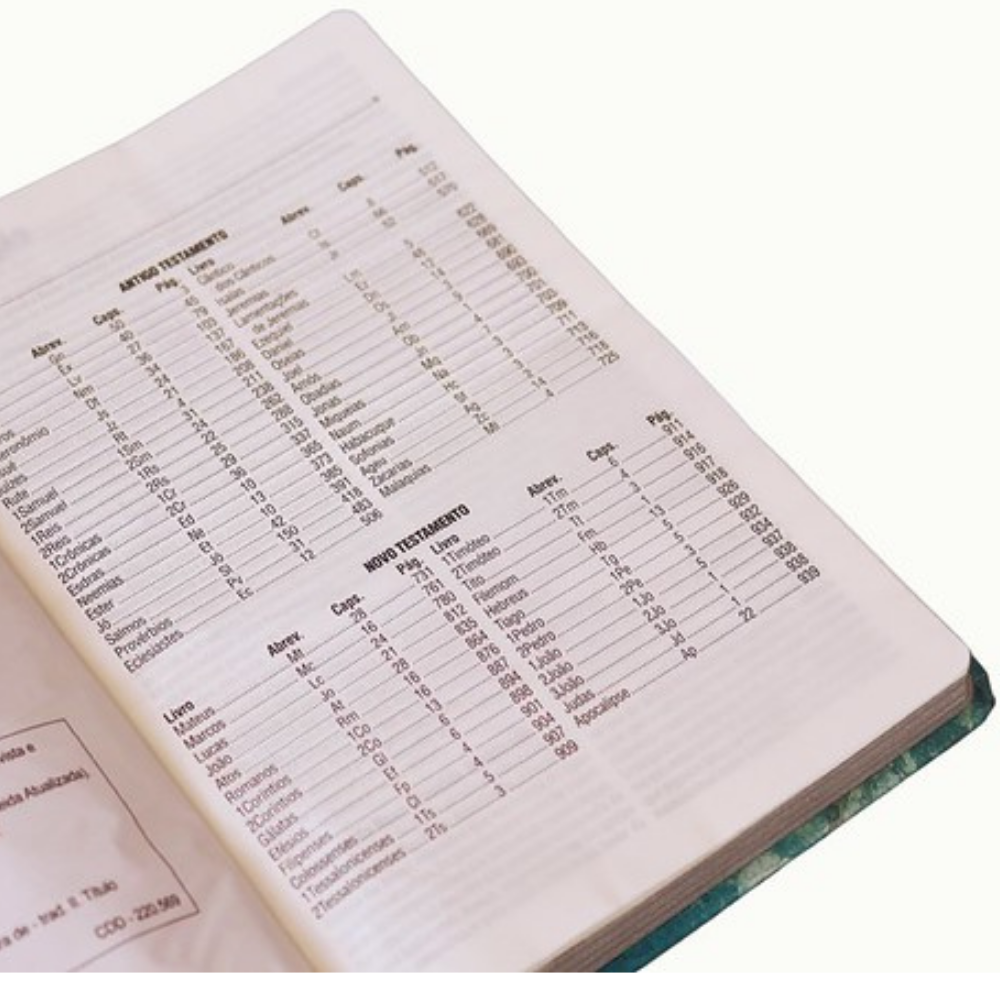 ANTIGO TESTAMENTO
Abrev. Caps. Pág.
Gn 50 3
Ex 40 45
Lv 27 79
Nm 36 103
Dt 34 137
Js 24 167
Jz 21 186
Rute Rt 4 208
1Samuel 1Sm 31 211
2Samuel 2Sm 24 238
1Reis 1Rs 22 262
2Reis 2Rs 288
1Crônicas 1Cr 29 315
2Crônicas 2Cr 36 337
Esdras Ed 10 365
Neemias Ne 13 373
Ester Et 10 385
Jó Jó 42 391
Salmos Sl 150 418
Provérbios Pv 31 483
Eclesiastes Ec 12 506
Livro Abrev. Caps. Pág.
Cântico
dos Cânticos Ct 8 512
Isaías Is 66 517
Jeremias Jr 52 570
Lamentações
de Jeremias Lm 5 622
Ezequiel Ez 48 628
Daniel Dn 669
Oseias Os 681
Joel 690
Amós Am 693
Obadias Ob 700
Jonas 701
Miqueias Mq 703
Naum Na
Habacuque Hc
Sofonias Sf 711
Ageu Ag 713
Zacarias Zc 14
Malaquias Ml 4 725
NOVO TESTAMENTO
Livro Abrev. Caps. Pág.
Mateus Mt 28 731
Marcos Mc 16 761
Lucas Lc 24 780
João Jo 21 812
Atos At 28 835
Romanos Rm 16 864
1Coríntios 1Co 16 876
2Coríntios 2Co 13 887
Gálatas Gl 6 894
Efésios Ef 6 898
Filipenses Fp 4 901
Colossenses Cl 4 904
1Tessalonicenses 1Ts 5 907
2Tessalonicenses 2Ts 3 909
Livro Abrev. Caps. Pág.
1Timóteo 1Tm 6 911
2Timóteo 2Tm 4 914
Tito Tt 3 916
Filemom Fm 1 917
Hebreus Hb 13 918
Tiago Tg 5 926
1Pedro 1Pe 5 929
2Pedro 2Pe 3 932
1João 1Jo 5 934
2João 2Jo 1 937
3João 3Jo 1 938
Judas Jd 1 938
Apocalipse Ap 22 939
vista e
Atualizada)
ra de - trad. II. Título
CDD - 220.569